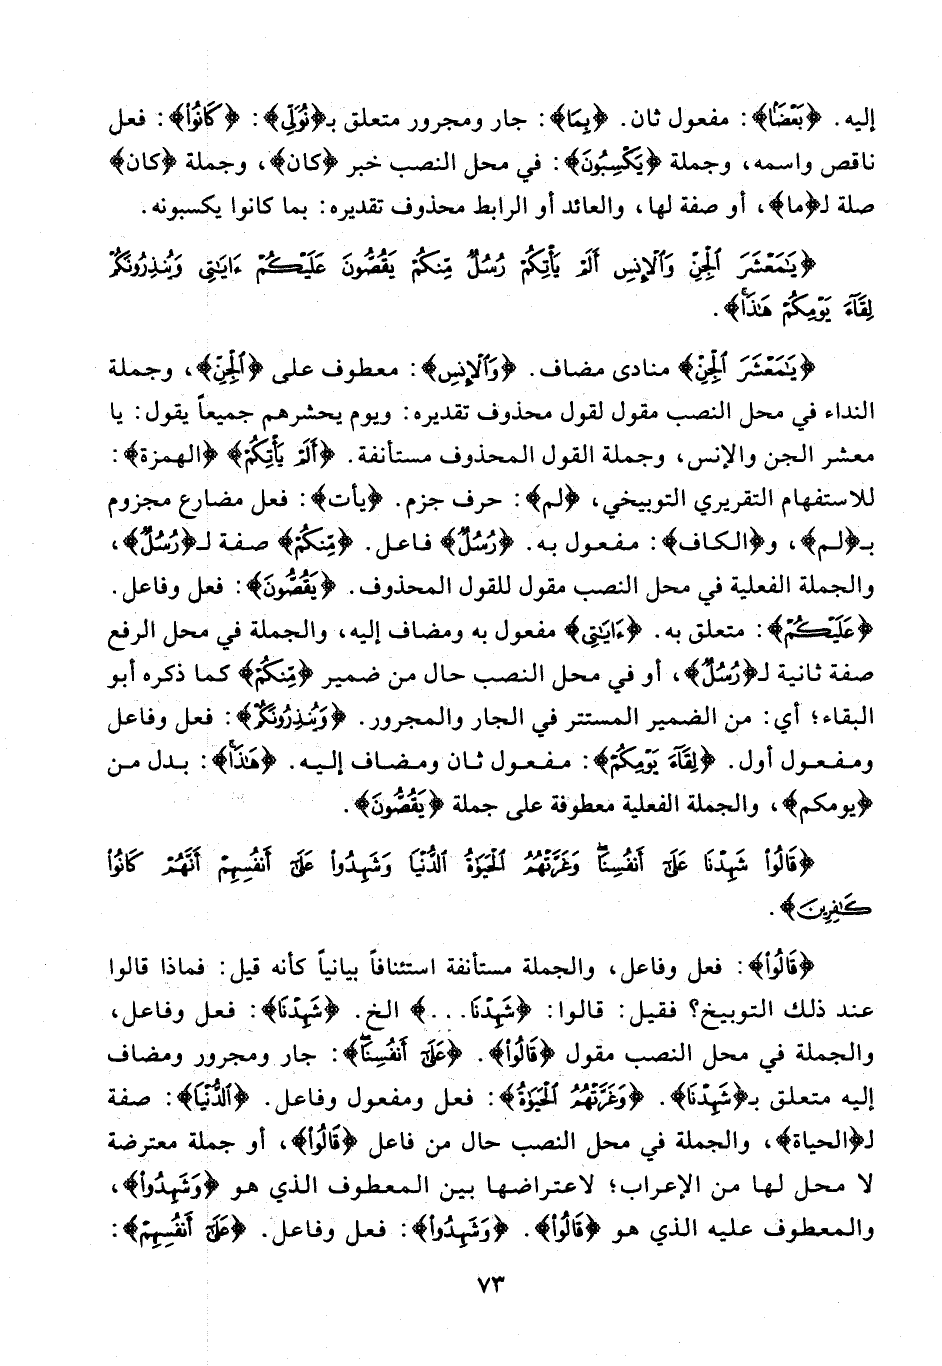 إليه. ﴿بَعْضًا﴾: مفعول ثان. ﴿بِمَا﴾: جار ومجرور متعلق بـ﴿نُوَلِّي﴾: ﴿كَانُوا۟﴾: فعل
ناقص واسمه، وجملة ﴿يَكْسِبُونَ﴾: في محل النصب خبر ﴿كان﴾، وجملة ﴿كان﴾
صلة لـ﴿ما﴾، أو صفة لها، والعائد أو الرابط محذوف تقديره: بما كانوا يكسبونه.
﴿يَٰمَعْشَرَ ٱلْجِنِّ وَٱلْإِنسِ أَلَمْ يَأْتِكُمْ رُسُلٌ مِّنكُمْ يَقُصُّونَ عَلَيْكُمْ ءَايَٰتِى وَيُنذِرُونَكُمْ
لِقَآءَ يَوْمِكُمْ هَٰذَا﴾.
﴿يَٰمَعْشَرَ ٱلْجِنِّ﴾ منادى مضاف. ﴿وَٱلْإِنسِ﴾: معطوف على ﴿ٱلْجِنِّ﴾، وجملة
النداء في محل النصب مقول لقول محذوف تقديره: ويوم يحشرهم جميعاً يقول: يا
معشر الجن والإنس، وجملة القول المحذوف مستأنفة. ﴿أَلَمْ يَأْتِكُمْ﴾ ﴿الهمزة﴾:
للاستفهام التقريري التوبيخي، ﴿لم﴾: حرف جزم. ﴿يأت﴾: فعل مضارع مجزوم
بـ﴿لـم﴾، و﴿الكاف﴾: مفعول به. ﴿رُسُلٌ﴾ فاعل. ﴿مِّنكُمْ﴾ صفة لـ﴿رُسُلٌ﴾،
والجملة الفعلية في محل النصب مقول للقول المحذوف. ﴿يَقُصُّونَ﴾: فعل وفاعل.
﴿عَلَيْكُمْ﴾: متعلق به. ﴿ءَايَٰتِى﴾ مفعول به ومضاف إليه، والجملة في محل الرفع
صفة ثانية لـ﴿رُسُلٌ﴾، أو في محل النصب حال من ضمير ﴿مِّنكُمْ﴾ كما ذكره أبو
البقاء؛ أي: من الضمير المستتر في الجار والمجرور. ﴿وَيُنذِرُونَكُمْ﴾: فعل وفاعل
ومفعول أول. ﴿لِقَآءَ يَوْمِكُمْ﴾: مفعول ثان ومضاف إليه. ﴿هَٰذَا﴾: بدل من
﴿يومكم﴾، والجملة الفعلية معطوفة على جملة ﴿يَقُصُّونَ﴾.
﴿قَالُوا۟ شَهِدْنَا عَلَىٰٓ أَنفُسِنَا وَغَرَّتْهُمُ ٱلْحَيَوٰةُ ٱلدُّنْيَا وَشَهِدُوا۟ عَلَىٰٓ أَنفُسِهِمْ أَنَّهُمْ كَانُوا۟
كَٰفِرِينَ﴾.
﴿قَالُوا۟﴾: فعل وفاعل، والجملة مستأنفة استئنافاً بيانياً كأنه قيل: فماذا قالوا
عند ذلك التوبيخ؟ فقيل: قالوا: ﴿شَهِدْنَا...﴾ الخ. ﴿شَهِدْنَا﴾: فعل وفاعل،
والجملة في محل النصب مقول ﴿قَالُوا۟﴾. ﴿عَلَىٰٓ أَنفُسِنَا﴾: جار ومجرور ومضاف
إليه متعلق بـ﴿شَهِدْنَا﴾. ﴿وَغَرَّتْهُمُ ٱلْحَيَوٰةُ﴾: فعل ومفعول وفاعل. ﴿ٱلدُّنْيَا﴾: صفة
لـ﴿الحياة﴾، والجملة في محل النصب حال من فاعل ﴿قَالُوا۟﴾، أو جملة معترضة
لا محل لها من الإعراب؛ لاعتراضها بين المعطوف الذي هو ﴿وَشَهِدُوا۟﴾،
والمعطوف عليه الذي هو ﴿قَالُوا۟﴾. ﴿وَشَهِدُوا۟﴾: فعل وفاعل. ﴿عَلَىٰٓ أَنفُسِهِمْ﴾:
٧٣